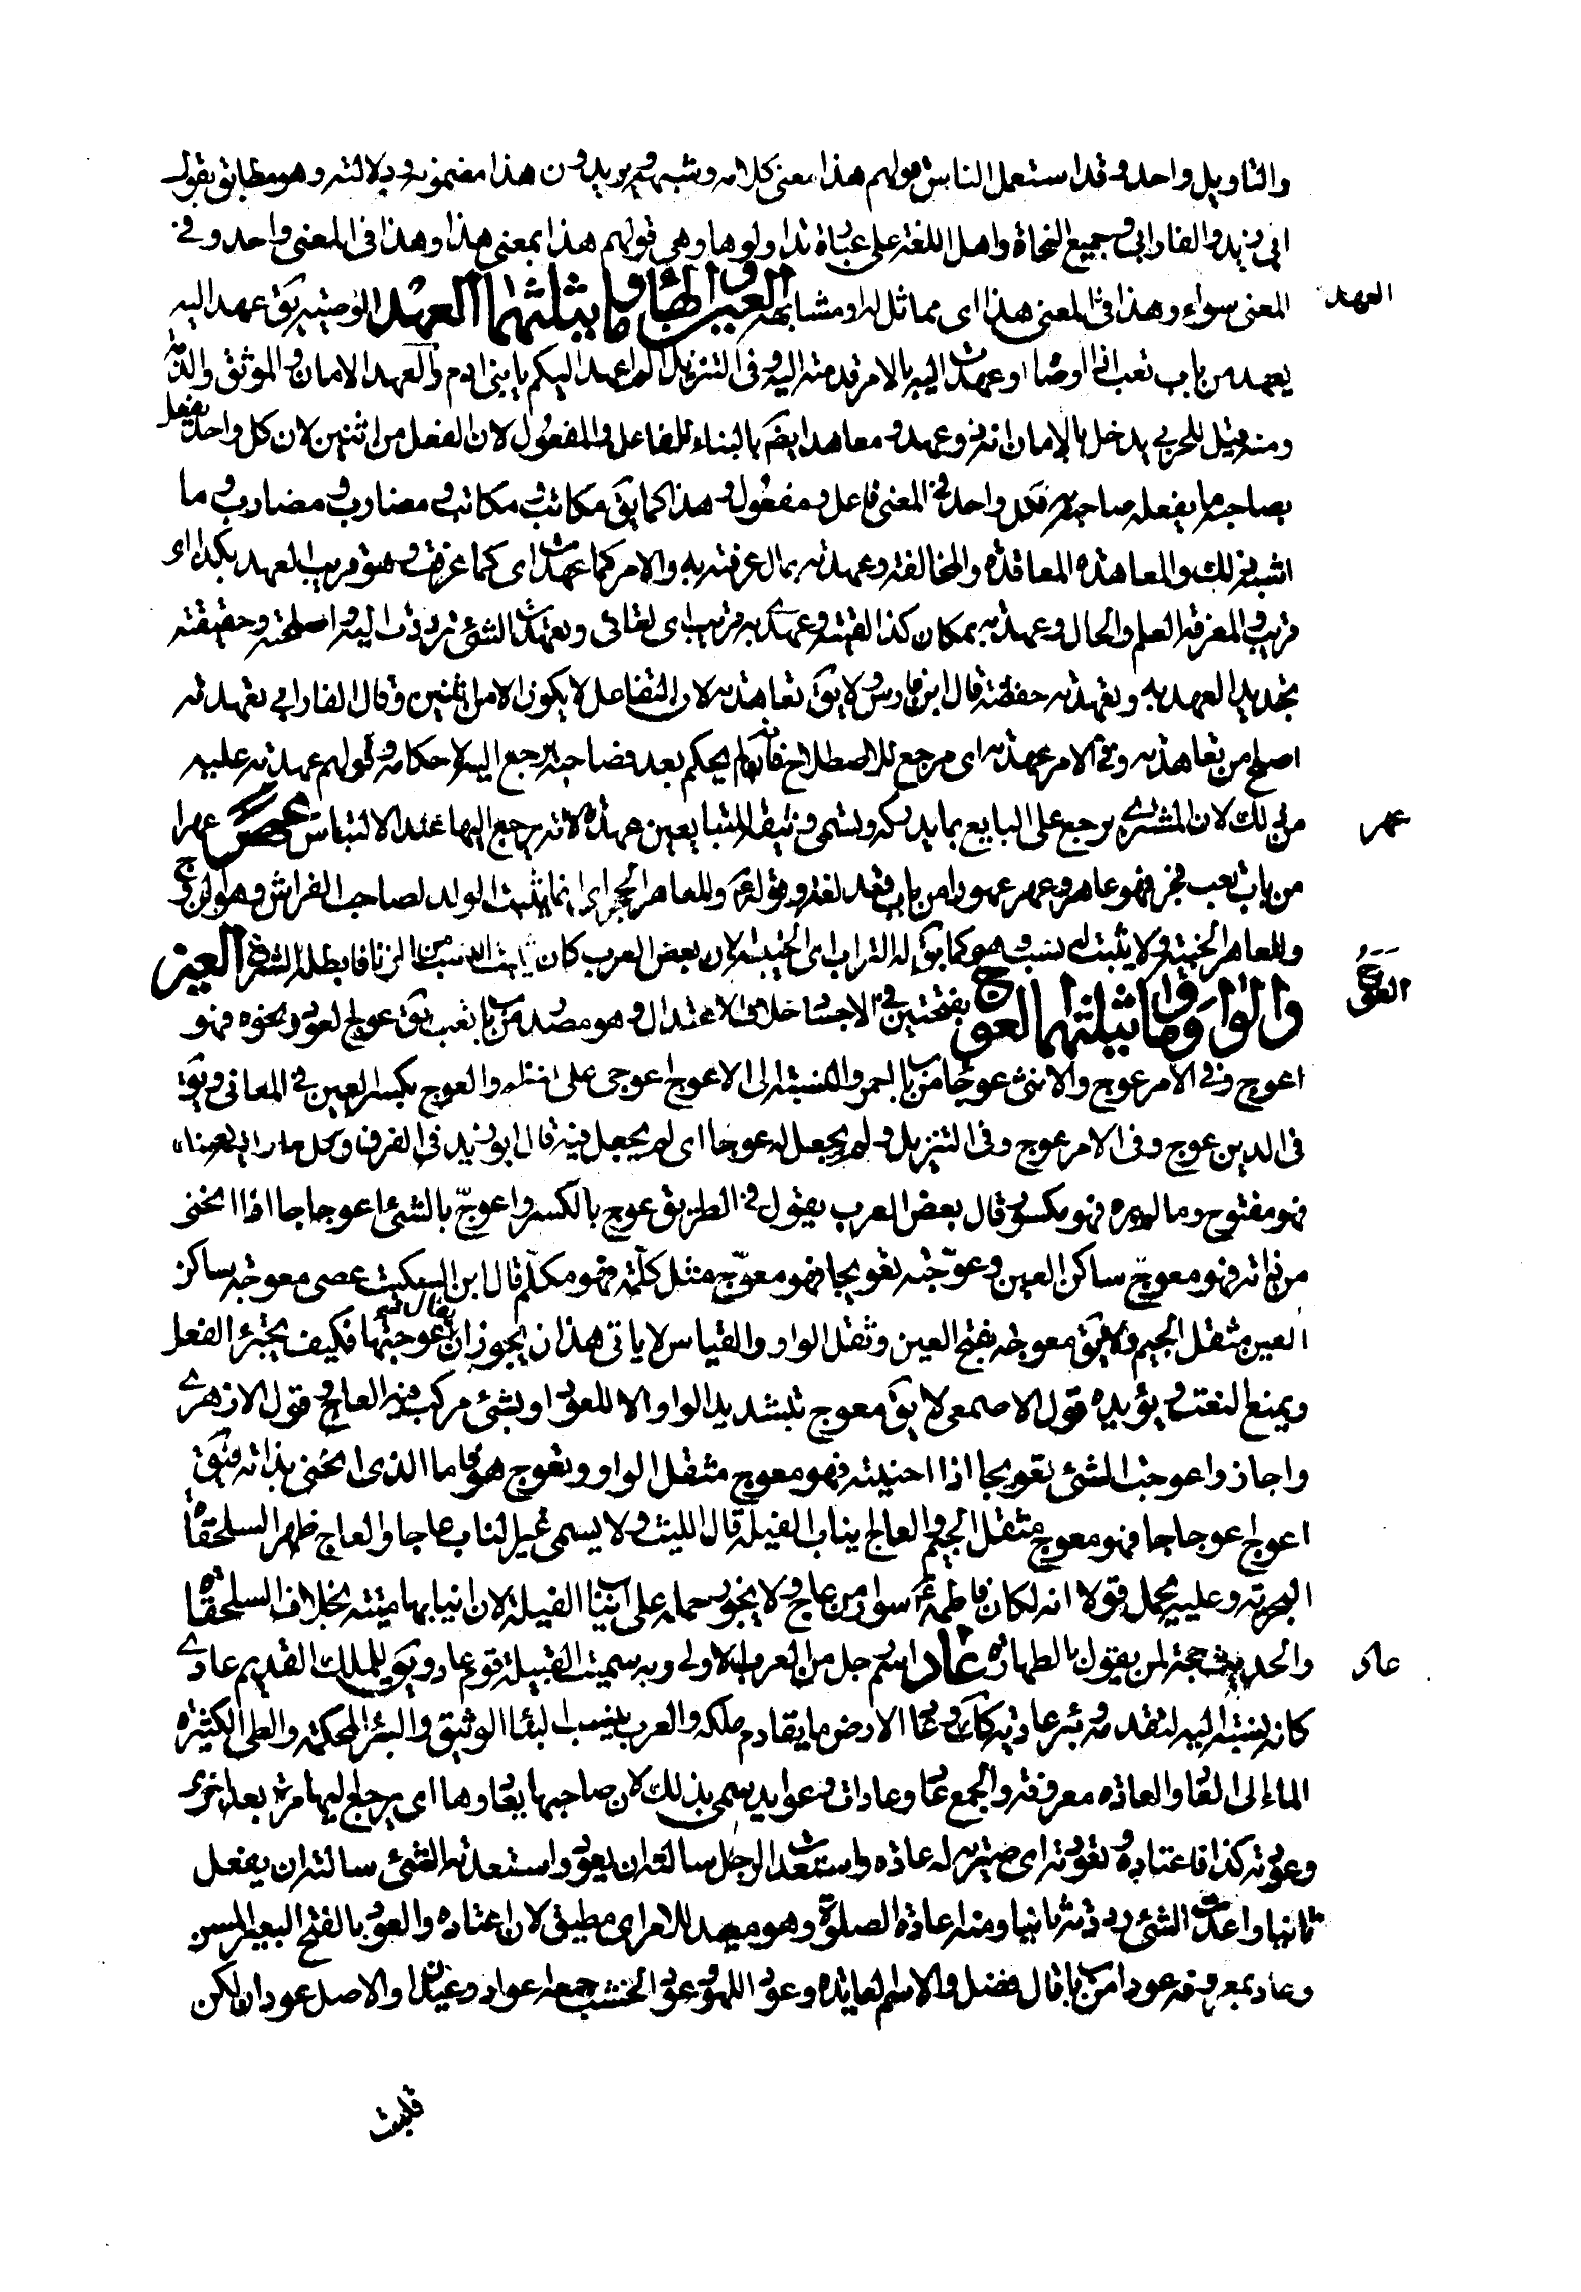 والتاويل واحد وقد استعمل الناس قولهم هذا معنى كلامه وشبهه ويريدون هذا مضمونه ودلالته وهو مطابق بقول
ابى زيد والفارابى وجميع النحاة واهل اللغة على عبارة تداولوها وهى قولهم هذا بمعنى هذا وهذا فى المعنى واحد وفى
المعنى سواء وهذا فى المعنى هذا اى مماثل له او مشابهه العين والهاء وما يثلثهما العهد الوصية يق عهد اليه
العهد
يعهد من باب تعب اذا اوصاه وعهدت اليه بالامر قدمته اليه وفى التنزيل الم اعهد اليكم يا بنى ادم والعهد الامان والموثق والذمة
ومنه قيل للحربى يدخل بالامان انه ذو عهد ومعاهد ايضم بالبناء للفاعل والمفعول لان الفعل من اثنين لان كل واحد يفعل
بصاحبه ما يفعله صاحبه به فكل واحد فى المعنى فاعل ومفعول وهذا كما يق مكاتب ومكاتب ومضارب ومضارب وما
اشبه ذلك والمعاهدة المعاقدة والمخالفة وعهدته بمال عرفته به والامر كما عهدت اى كما عرفت وهو قريب العهد بكذا اى
قريب المعرفة العلم والحال وعهدته بمكان كذا لقيته وعهدى به قريب اى لقائى وتعهدت الشئ ترددت اليه واصلحته وحقيقته
تجديد العهد به وتعهدته حفظته قال ابن فارس ولا يق تعاهدته لان التفاعل لا يكون الا من اثنين وقال الفارابى تعهدته
اصلح من تعاهدته وفى الامر عهدة اى مرجع للاصطلاح فانه لم يحكم بعد فصاحبه يرجع اليه لاحكامه وقولهم عهدته عليه
من ذلك لان المشترى يرجع على البايع بما يدركه وتسمى وثيقة المتبايعين عهدة لانه يرجع اليها عند الالتباس عهر عهرا
عهر
من باب تعب فجر فهو عاهر وعهر عهودا من باب قعد لغة وقوله عم وللعاهر الحجر اى انما يثبت الولد لصاحب الفراش وهو الزوج
وللعاهر الخيبة ولا يثبت له نسب وهو كما يق له التراب اى الخيبة لان بعض العرب كان يثبت النسب من الزنا فابطله الشرع العين
والواو وما يثلثهما العوج بفتحتين فى الاجساد خلاف الاعتدال وهو مصدر من باب تعب يق عوج العود ونحوه فهو
العوج
اعوج وفى الامر عوج والانثى عوجاء من باب احمر والنسبة الى الاعوج اعوجى على لفظه والعوج بكسر العين فى المعانى ويق
فى الدين عوج وفى الامر عوج وفى التنزيل ولم يجعل له عوجا اى لم يجعل فيه قال ابو زيد فى الفرق وكل ما رايته بعينك
فهو مفتوح وما لم تره فهو مكسور قال بعض العرب يقول فى الطريق عوج بالكسر واعوجّ بالشئ اعوجاجا اذا انحنى
من ذاته فهو معوجّ ساكن العين وعوّجته تعويجا فهو معوّج مثل كلّمته فهو مكلّم قال ابن السكيت عصى معوجة بساكن
العين مثقل الجيم ولا يق معوجة بفتح العين وثقل الواو والقياس لا ياتى هذا اذ يجوز ان يقال قد عوجتها فكيف يجيز الفعل
ويمنع النعت ويؤيده قول الاصمعى لا يق معوج بتشديد الواو الا للعود او بشئ مركب فيه العاج وقول الازهرى
واجازوا عوجت الشئ تعويجا اذا احنيته فهو معوج مثقل الواو وتعوج هو فاما الذى انحنى بذاته فيق
اعوج اعوجاجا فهو معوج مثقل الجيم والعاج انياب الفيلة قال الليث ولا يسمى غير الناب عاجا والعاج ظهر السلحفاة
البحرية وعليه يحمل قولا انه لكان فاطمة عم سوار من عاج ولا يجوز حمله على انياب الفيلة لان انيابها ميتة بخلاف السلحفاة
والحديث حجة لمن يقول بالطهارة عاد اسم رجل من العرب الاولى وبه سميت القبيلة قوم عاد ويق للملك القديم عادى
عاد
كانه نسبة اليه لتقدمه وبئر عادية كذلك وعادى الارض ما تقادم ملكه والعرب ينسب البناء الوثيق والبئر المحكمة والطى الكثيرة
الماء الى العاد والعادة معروفة والجمع عاد وعادات وعوايد سمى بذلك لان صاحبها يعاودها اى يرجع اليها مرة بعد اخرى
وعودته كذا فاعتاده وتعوده اى صيرته له عادة واستعدت الرجل سالته ان يعود واستعدته الشئ سالته ان يفعل
ثانيا واعدت الشئ رددته ثانيا ومنه اعادة الصلوة وهو معيد للامر اى مطيق لان اعتاده والعود بالفتح البعير المسن
وعاد بمعروفه عودا من باب قال فضل والاسم العايدة وعود اللهو وعود الخشب جمعه اعواد وعيدان والاصل عودان لكن
قلبت